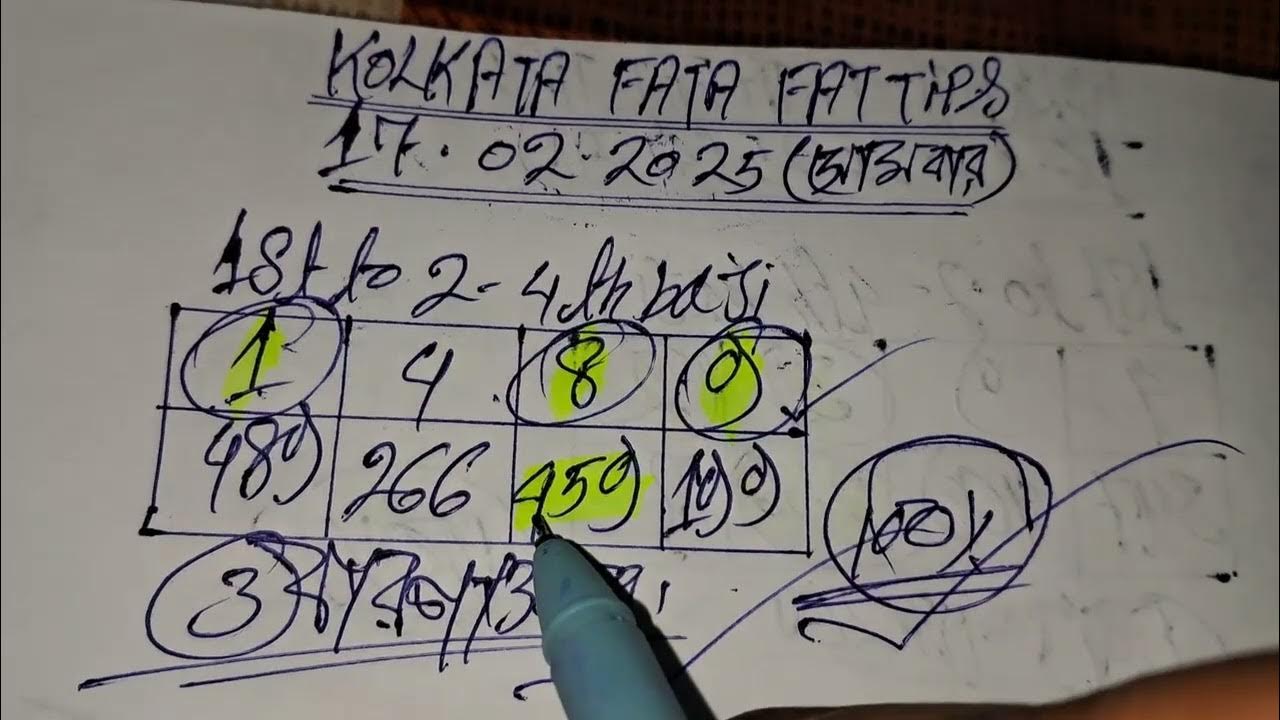 KOLKATA FATA FAT TIPS
17.02.2025 (সোমবার)
1st to 2-4th baji
1 4 8 9
489 266 459 199
3
100%